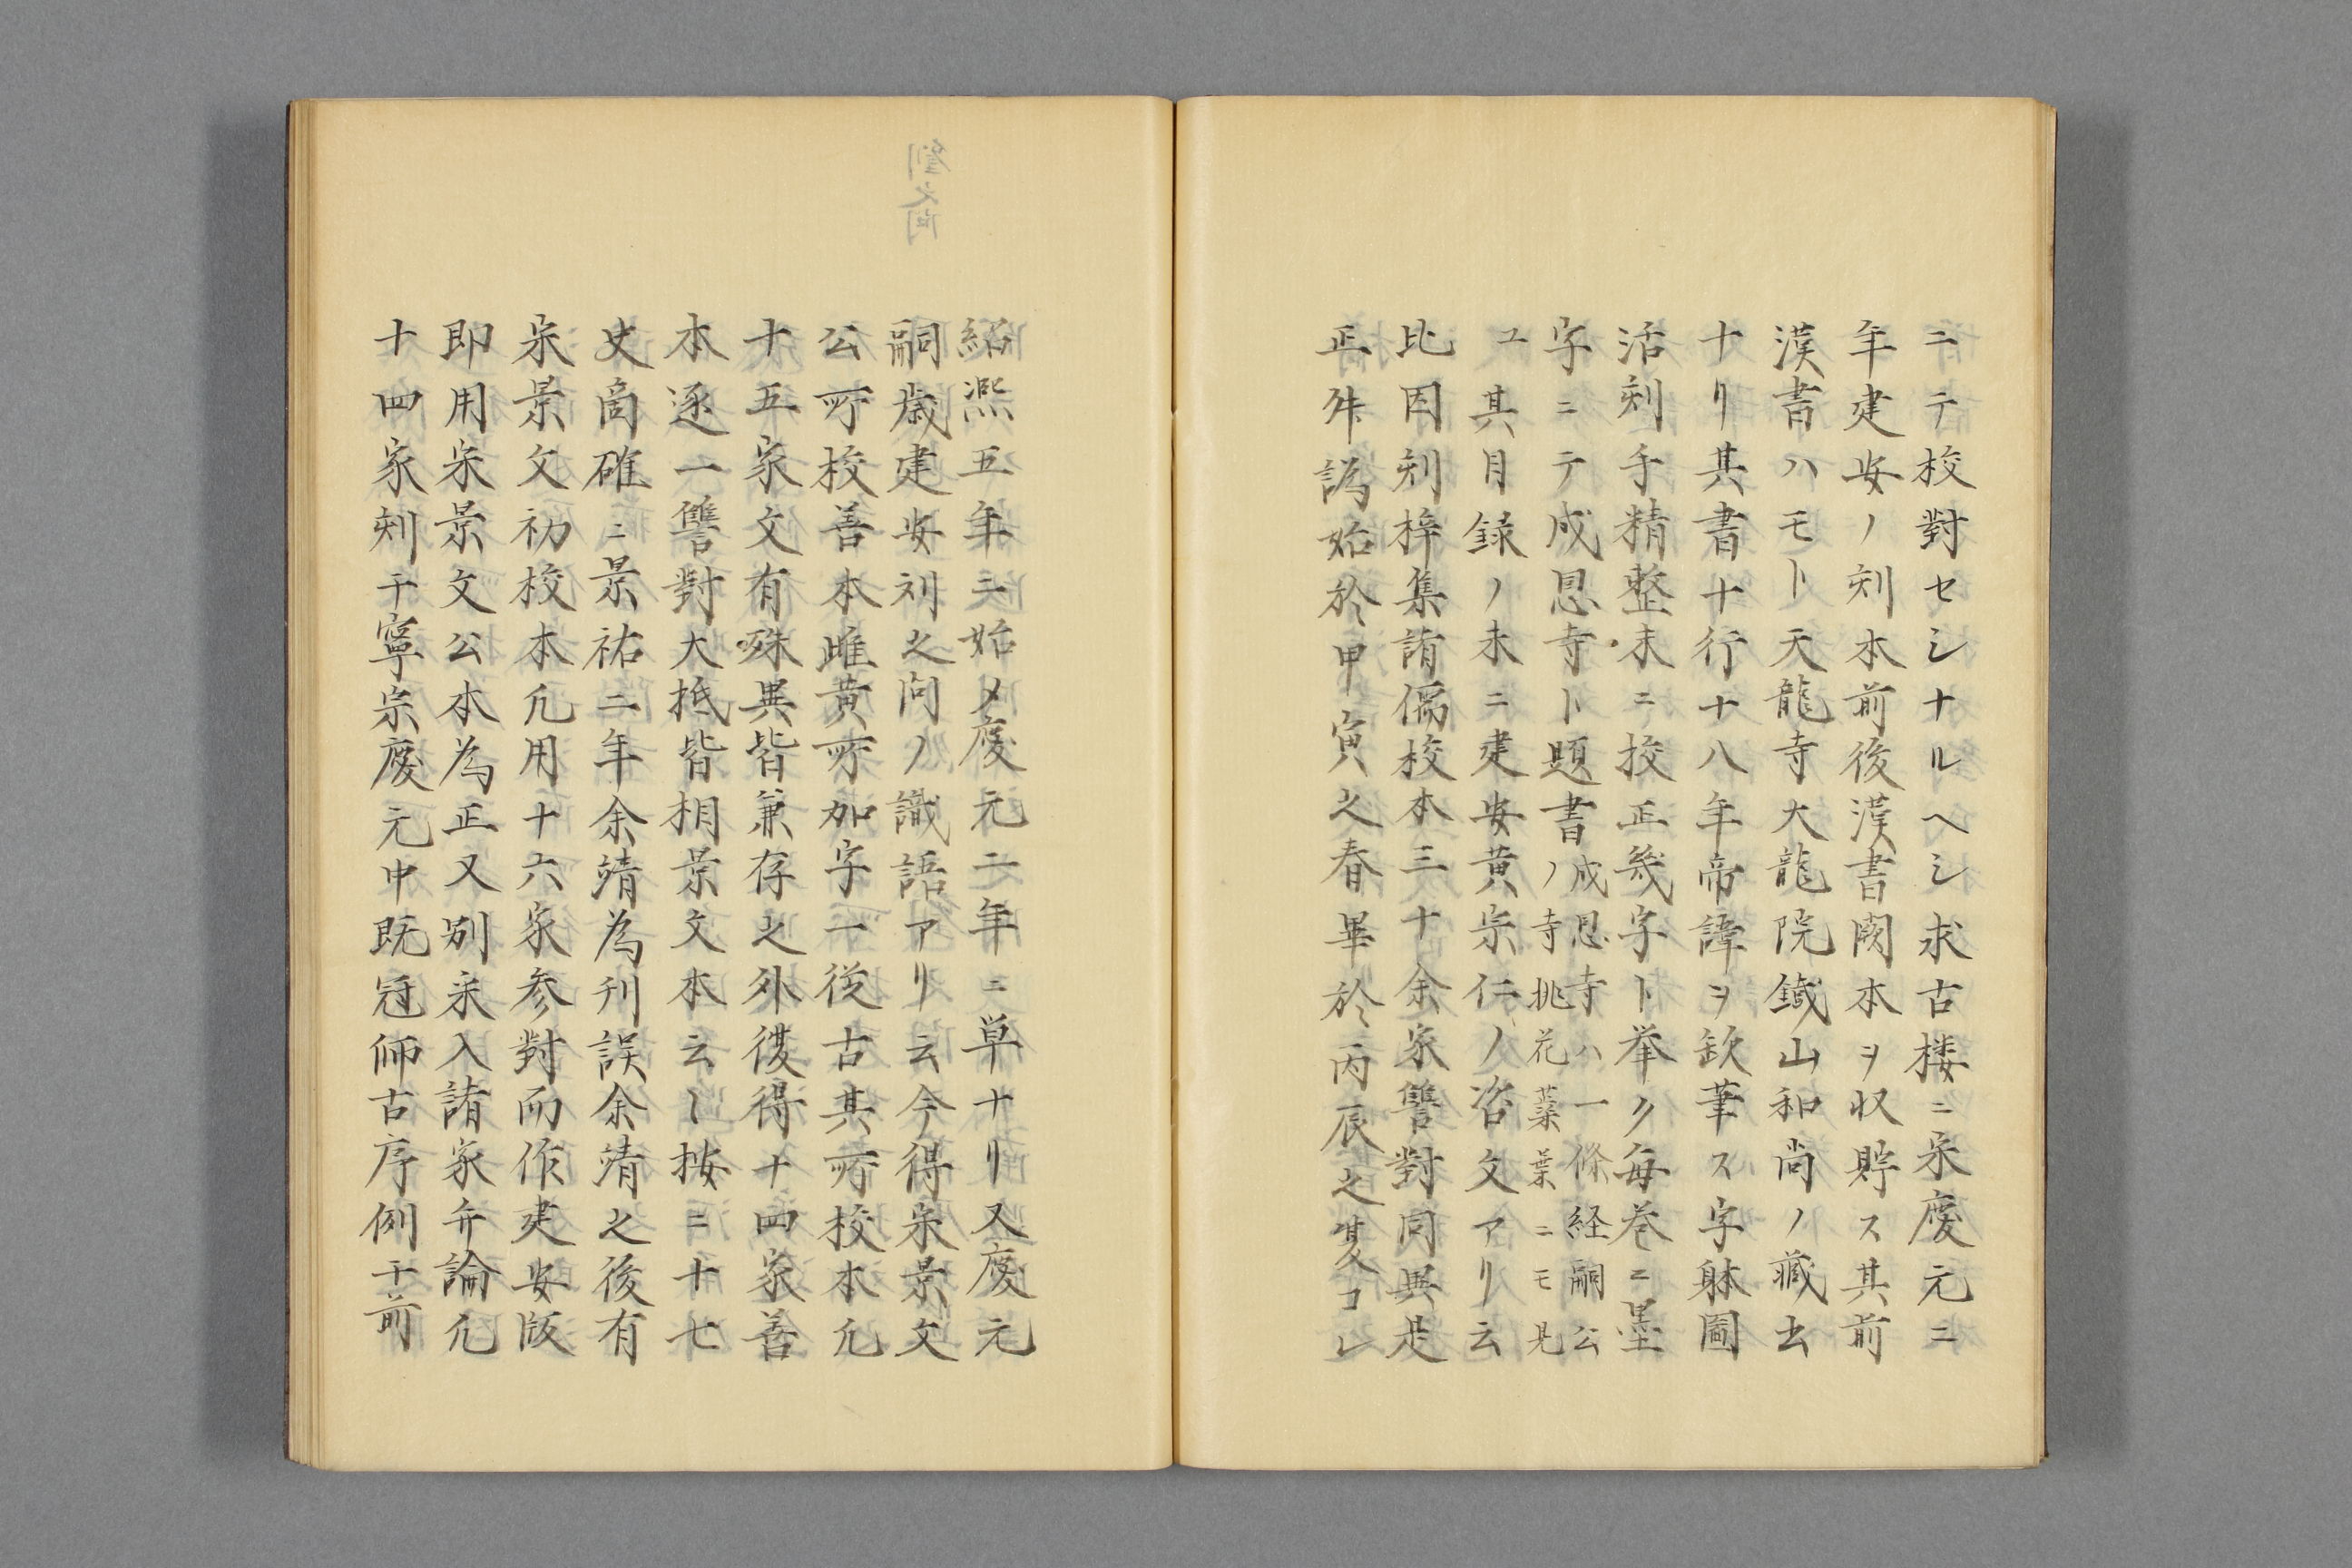 ニテ校對セシナルヘシ求古楼ニ宋慶元ニ
年建安ノ刻本前後漢書闕本ヲ収貯ス其前
漢書ハモト天龍寺大龍院鐡山和尚ノ藏出
ナリ其書十行十八年帝諱ヲ欽筆ス字躰圖
活刻手精整末ニ挍正幾字ト挙ク毎巻ニ墨
字ニテ成恩寺ト題書ノ成恩寺ハ一條経嗣公
ノ寺桃花蘂葉ニモ見
ユ其目録ノ末ニ建安黄宗仁ノ咨文アリ云
比因刻梓集諸儒校本三十余家讐對同異是
正舛譌始於甲寅之春畢於丙辰之夏コレ
紹熙五年ニ始メ慶元二年ニ卒ナリ又慶元
嗣歳建安刘之问ノ識語アリ云今得宋景文
公所校善本雌黄所加字一従古其所校本凢
十五家文有殊異皆兼存之外復得十四家善
本逐一讐對大抵皆相景文本云〻按ニ十七
史商確ニ景祐二年余靖為刊誤余靖之後有
宋景文初校本凢用十六家参對而作建安版
即用宋景文公本為正又別采入諸家弁論凢
十四家刻于寧宗慶元中既冠師古序例于前